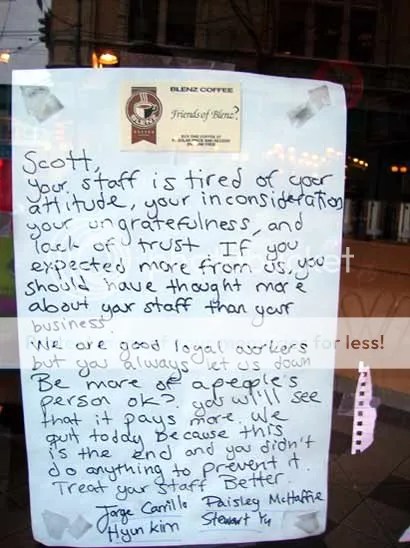 BLENZ COFFEE
Friends of Blenz?
BLENZ
COFFEE
Scott,
your staff is tired of your
attitude, your inconsideration
your ungratefulness, and
lack of trust. If you
expected more from us, you
should have thought more
about your staff than your
business.
We are good loyal workers
but you always let us down
Be more of a people's
person ok? you will see
that it pays more. We
quit today because this
is the end and you didn't
do anything to prevent it.
Treat your staff Better.
Jorge Carrillo Paisley McHaffie
Hyun Kim Stewart Yu
for less!